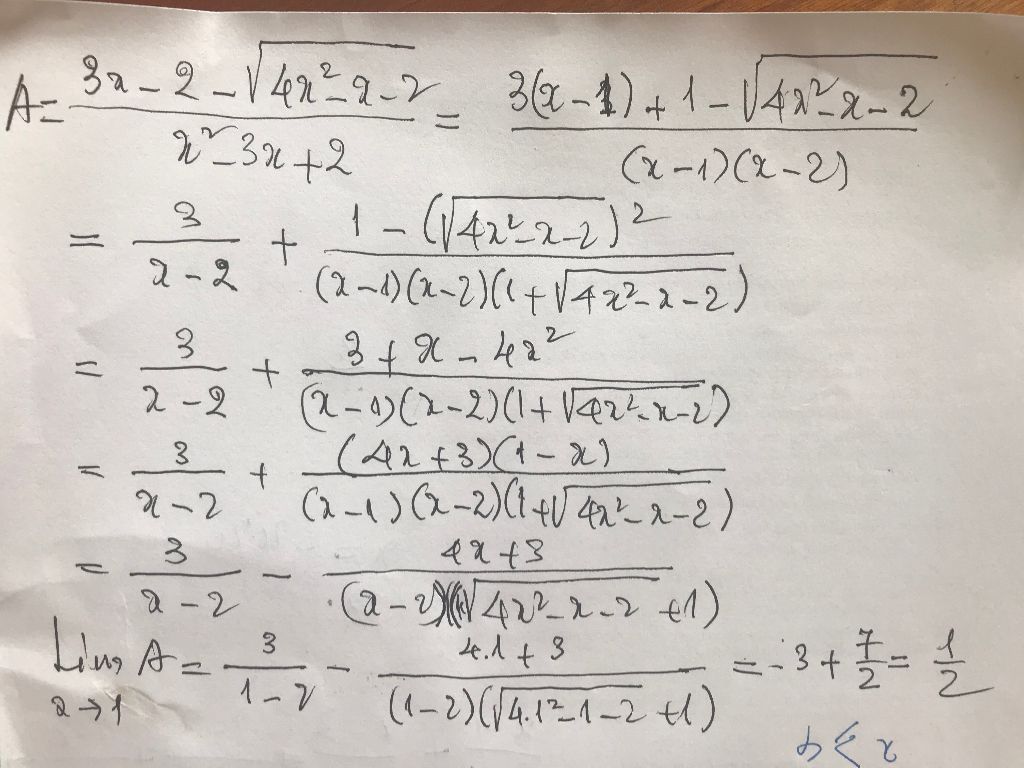 A = (3x - 2 - √(4x² - x - 2)) / (x² - 3x + 2) = (3(x - 1) + 1 - √(4x² - x - 2)) / ((x - 1)(x - 2))
= 3 / (x - 2) + (1 - (√(4x² - x - 2))²) / ((x - 1)(x - 2)(1 + √(4x² - x - 2)))
= 3 / (x - 2) + (3 + x - 4x²) / ((x - 1)(x - 2)(1 + √(4x² - x - 2)))
= 3 / (x - 2) + ((4x + 3)(1 - x)) / ((x - 1)(x - 2)(1 + √(4x² - x - 2)))
= 3 / (x - 2) - (4x + 3) / ((x - 2)(√(4x² - x - 2) + 1))
Lim A = 3 / (1 - 2) - (4.1 + 3) / ((1 - 2)(√(4.1² - 1 - 2) + 1)) = -3 + 7/2 = 1/2
x → 1